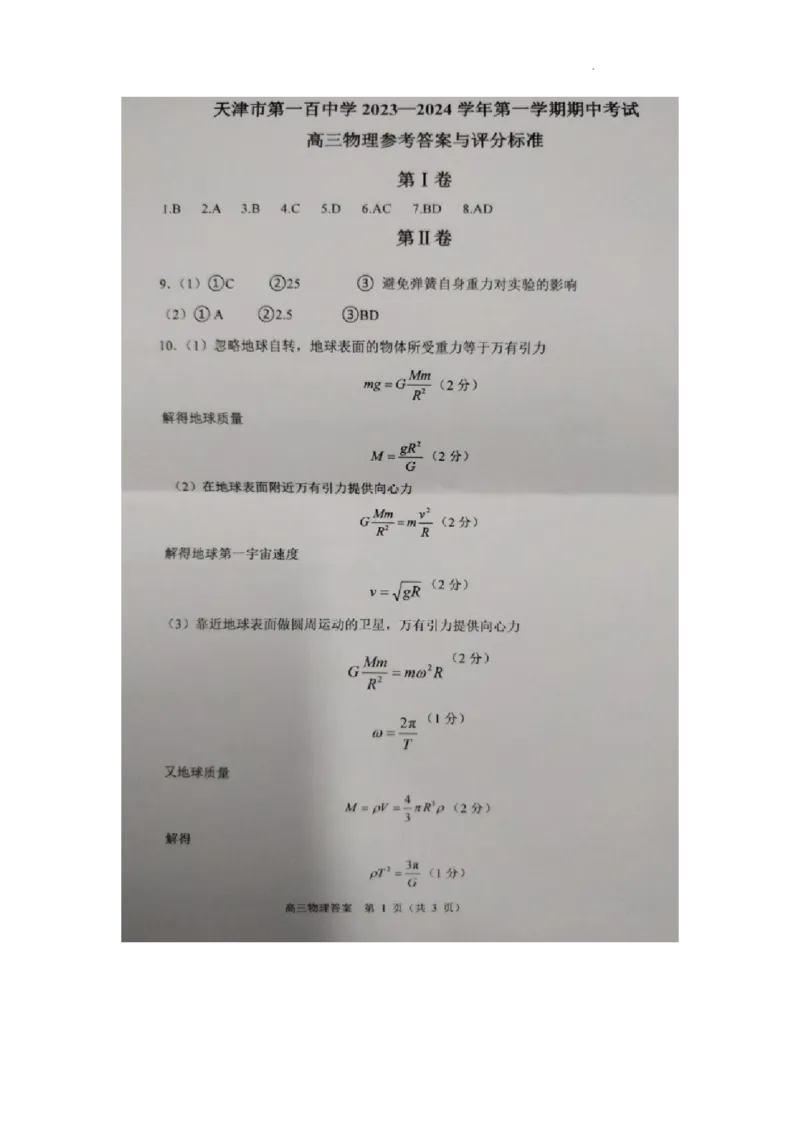 天津市第一百中学 2023—2024 学年第一学期期中考试
高三物理参考答案与评分标准
第Ⅰ卷
1.B 2.A 3.B 4.C 5.D 6.AC 7.BD 8.AD
第Ⅱ卷
9.（1）①C ②25 ③ 避免弹簧自身重力对实验的影响
（2）①A ②2.5 ③BD
10.（1）忽略地球自转，地球表面的物体所受重力等于万有引力
mg = G\frac{Mm}{R^2}（2 分）
解得地球质量
M = \frac{gR^2}{G}（2 分）
（2）在地球表面附近万有引力提供向心力
G\frac{Mm}{R^2} = m\frac{v^2}{R}（2 分）
解得地球第一宇宙速度
v = \sqrt{gR}（2 分）
（3）靠近地球表面做圆周运动的卫星，万有引力提供向心力
G\frac{Mm}{R^2} = mω^2R（2 分）
ω = \frac{2π}{T}（1 分）
又地球质量
M = ρV = \frac{4}{3}πR^3ρ（2 分）
解得
ρT^2 = \frac{3π}{G}（1 分）
高三物理答案 第 1 页（共 3 页）